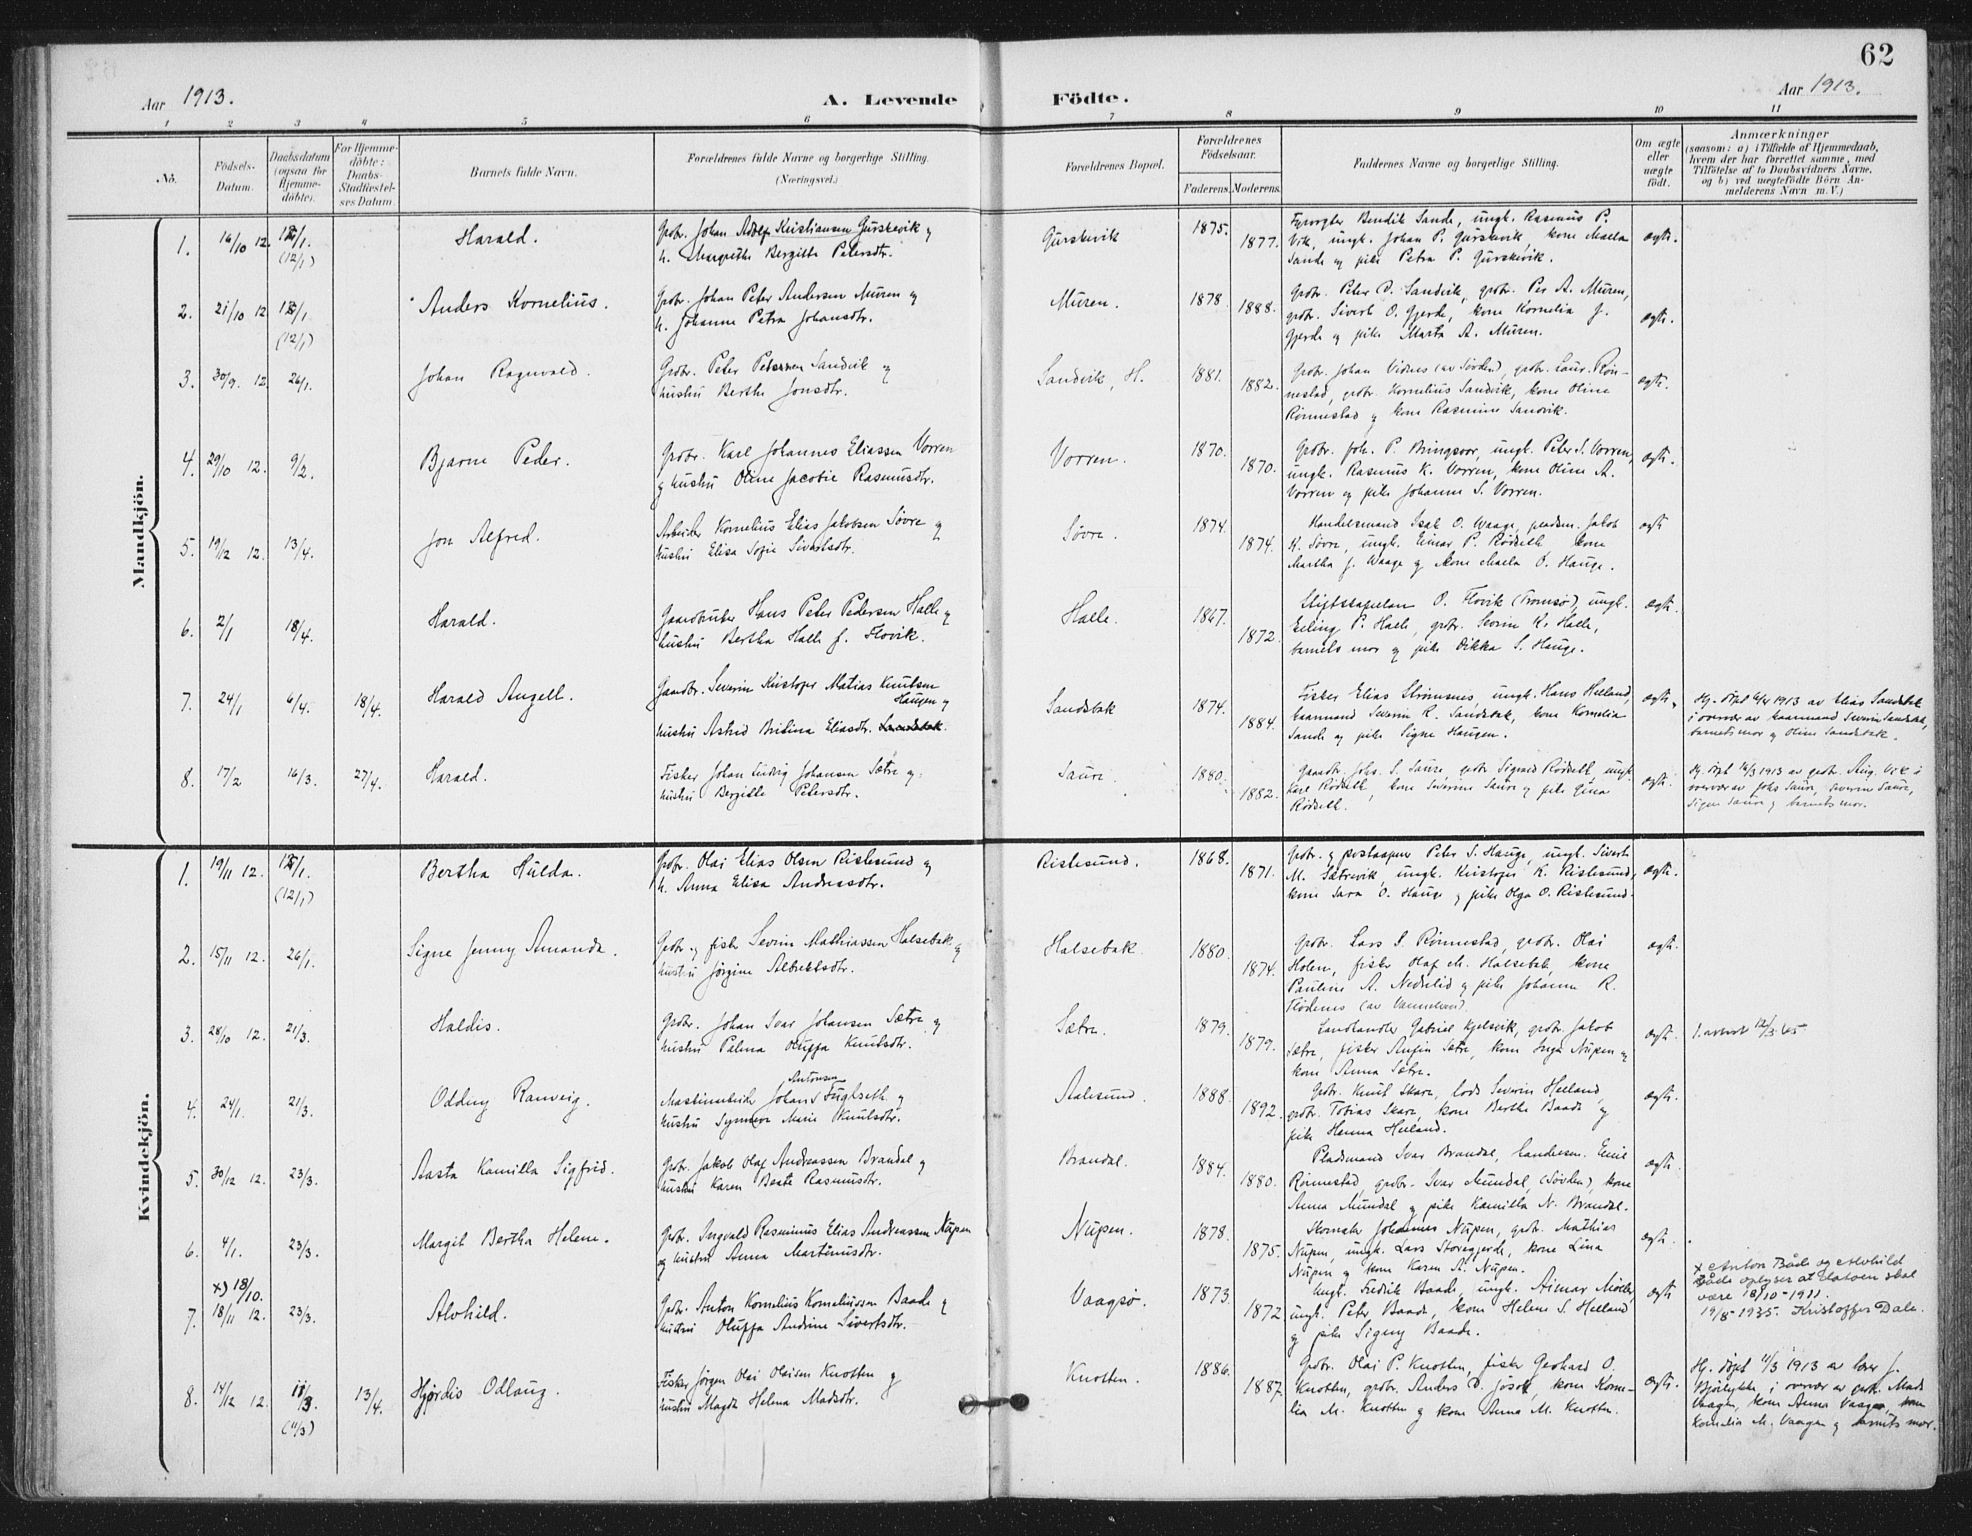 62
Aar 1913.
A. Levende Födte.
Aar 1913.
1 2 3 4 5 6 7 8 9 10 11
No.
Födsels-Datum.
Daabsdatum (ogsaa for Hjemme-döbte).
For Hjemme-döbte: Daabs-Stadfæstel-ses Datum.
Barnets fulde Navn.
Forældrenes fulde Navne og borgerlige Stilling. (Næringsvei.)
Forældrenes Bopæl.
Forældrenes Födselsaar.
Faderens. Moderens.
Faddernes Navne og borgerlige Stilling.
Om ægte eller uægte født.
Anmærkninger (saasom: a) i Tilfælde af Hjemmedaab, hvem der har forrettet samme, med Tilföielse af to Daabsvidners Navne, og b) ved uægtefödte Börn Anmelderens Navn m. V.)
Mandkjön.
1. 16/10 12. (12/1) Harald.
Gbr. Johan Adolf Kristiansen Gurskevik og
h. Margrethe Bergitte Petersdtr.
Gurskevik 1875. 1877.
Fyrvogter Bendik Sande, ungk. Rasmus P.
Vik, ungk. Johan P. Gurskevik, kone Maela
Sande og pike Petra P. Gurskevik.
ægte.
2. 21/10 12 (12/1) Anders Kornelius.
Gbr. Johan Peter Andersen Muren og
h. Johanne Petra Johansdtr.
Muren. 1878. 1888.
gbr. Peter D. Sandvik, gbr. Per A. Muren,
gbr. Sivert O. Gjerde, kone Kornelia J.
Gjerde og pike Marta A. Muren.
ægte.
3. 30/9. 12 26/1. Johan Ragnvald.
Gbr. Peter Petersen Sandvik og
hustru Berthe Jonsdtr.
Sandvik, H. 1881. 1882.
Gbr. Johan Vidnes (av Søvden), gbr. Laur. Røn-
nestad, gbr. Kornelius Sandvik, kone Oline
Rønnestad og kone Rasmine Sandvik.
ægte.
4. 29/10 12. 9/2. Bjarne Peder.
Gbr. Karl Johannes Eliassen Vorren
og hustru Oline Jacobie Rasmusdtr.
Vorren. 1870. 1870.
Gbr. Joh. P. Bringsvor, ungk. Peter S. Vorren,
ungk. Rasmus K. Vorren, kone Oline A.
Vorren og pike Johanne S. Vorren.
ægte.
5. 19/12 12. 13/4. Jon Alfred.
Arbeider Kornelius Elias Jakobsen Søvre og
hustru Elisa Sofie Sivertsdtr.
Søvre. 1874. 1874.
Handelsmand Isak O. Waage, pladsm. Jakob
K. Søvre, ungk. Einar P. Rødseth kone
Martha J. Waage og kone Maela O. Hauge.
ægte
6. 2/1 18/4. Harald.
Gaardbruker Hans Peter Pedersen Halle og
hustru Bertha Halle f. Flovik.
Halle. 1867. 1872.
Stiftskapelan O. Flovik (Tromsø), ungk.
Erling P. Halle, gbr. Severin K. Halle,
barnets mor og pike Dikka S. Hauge.
ægte.
7. 24/1 6/4. 18/4. Harald Angell.
Gaardbr. Severin Kristofer Matias Knutsen
Haugen og
hustru Astrid Britina Eliasdtr.
Sandsbak 1874. 1884.
Fisker Elias Strømsnes, ungk. Hans Heiland,
kaarmand Severin R. Sandsbak, kone Kornelia
Sande og pike Signe Haugen.
ægte,
Hj. døpt 6/4 1913 av Elias Sandsbak
i overvær av kaarmand Severin Sandsbak,
barnets mor og Oline Sandsbak.
8. 17/2 16/3. 27/4. Harald.
Fisker Johan Ludvig Johansen Sætre og
hustru Bergitte Petersdtr.
Saure. 1880. 1882.
Gaardbr. Johs. S. Saure, gbr. Sigvald Rødseth, ungk.
Karl Rødseth, kone Severine Saure og pike Gina
Rødseth.
ægte.
Hj. døpt 16/3 1913 av gbr. Aug. Vik i
overvær av Johs Saure, Severin Saure,
Signe Saure og barnets mor.
Kvindekjön.
1. 19/11 12. (12/1) Bertha Hulda.
Gbr. Olai Elias Olsen Ristesund og
h. Anna Elisa Andreasdtr.
Ristesund. 1868. 1871.
Gbr. og postaapner Peter S. Hauge, ungk. Sivert
M. Sætrevik, ungk. Kristofer K. Ristesund,
kone Sara O. Hauge og pike Olga O. Ristesund.
ægte.
2. 15/11 12. 26/1. Signe Jenny Amanda.
Gbr. og fisker Severin Mathiassen Halsebak og
hustru Jørgine Albrektsdtr.
Halsebak. 1880. 1874.
Gbr. Lars S. Rønnestad, gbr. Olai
Holen, fisker Olaf M. Halsebak, kone
Pauline A. Nedrelid og pike Johanne R.
Flødenes (av Vannelven).
ægte.
3. 28/10 12. 21/3. Haldis.
Gbr. Johan Ivar Johansen Sætre og
hustru Palma Oluffa Knutsdtr.
Sætre. 1879. 1879.
Landhandler Gabriel Kjelsvik, gbr. Jakob
Sætre, fisker Anfin Sætre, kone Inga Nupen og
kone Anna Sætre.
ægte.
1. attest 12/3 45
4. 24/1. 21/3. Oddny Ranveig.
Antonsen
Maskinarbeider Johan Fuglseth og
hustru Synnøve Marie Knutsdtr.
Aalesund. 1888. 1892.
Gbr. Knut Skare, lods Severin Heiland,
gbr. Tobias Skare, kone Berthe Baade og
pike Hanna Heiland.
ægte.
5. 30/12 12. 23/3. Aasta Kamilla Sigfrid.
Gbr. Jakob Olaf Andreassen Brandal og
hustru Karen Beate Rasmusdtr.
Brandal. 1884. 1880.
Pladsmand Ivar Brandal, handelsm. Emil
Rønnestad, gbr. Ivar Mundal, (Søvden), kone
Anna Mundal og pike Kamilla N. Brandal.
ægte.
6. 4/1. 23/3. Margit Bertha Helene.
Gbr. Ingvald Rasmus Elias Andreassen Nupen
og hustru Anna Martinusdtr.
Nupen. 1878. 1875.
Skomaker Johannes Nupen, gbr. Mathias
Nupen, ungk. Lars Storegjerde, kone Lina
Nupen og kone Karen A. Nupen.
ægte.
x) 18/10.
7. 18/11 12. 23/3. Alvhild.
Gbr. Anton Kornelius Korneliussen Baade og
hustru Oluffa Andrine Sivertsdtr.
Vaagsø. 1873. 1872
Ungk. Fredrik Baade, ungk. Aimar Moldes
ungk. Peter Baade, kone Helene S. Heiland
og pike Signy Baade.
ægte
x Anton Både og Alvhild
Både oplyser at datoen skal
være 18/10-1911.
19/8-1935. Kristoffer Dale.
8. 14/12 12. 11/3. (11/3) 13/4. Hjørdis Odlaug.
Fisker Jørgen Olai Olaisen Knotten og
hustru Magda Helena Madsdtr.
Knotten. 1886. 1887.
Gbr. Olai P. Knotten, fisker Gerhard O.
Knotten, gbr. Anders D. Jøsok, kone Korne-
lia M. Knotten og kone Anna M. Knotten.
ægte.
Hj. døpt 11/3 1913 av lærer J.
Bjørlykke i overvær av gbr. Mads
Vaagen, kone Anna Vaagen, kone
Kornelia M. Vaagen og barnets mor.